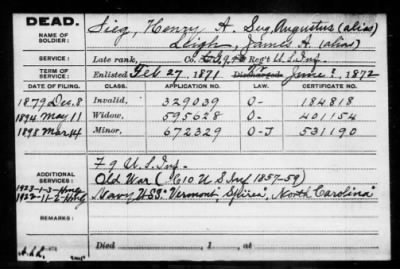 DEAD.
NAME OF SOLDIER: Sieg, Henry A. Sieg, Augustus (alias)
Leigh, James A. (alias)
SERVICE: Late rank, Co. Reg't U.S. Inf.
TERM OF SERVICE: Enlisted Feb 27, 1871 Discharged June ?, 1872
DATE OF FILING. CLASS. APPLICATION NO. CERTIFICATE NO.
1879 Dec. 8 Invalid, 329039 O- 184818
1894 May 11 Widow, 595628 O- 401154
1898 Mar 14 Minor, 672329 O-J 531190
F 9 U.S. Inf.
ADDITIONAL SERVICES: Old War (C 10 U S Inf 1857-59)
1923-1-3-
1922-11-2- Navy, U.S.S. Vermont, North Carolina
REMARKS:
Died , 1 , at